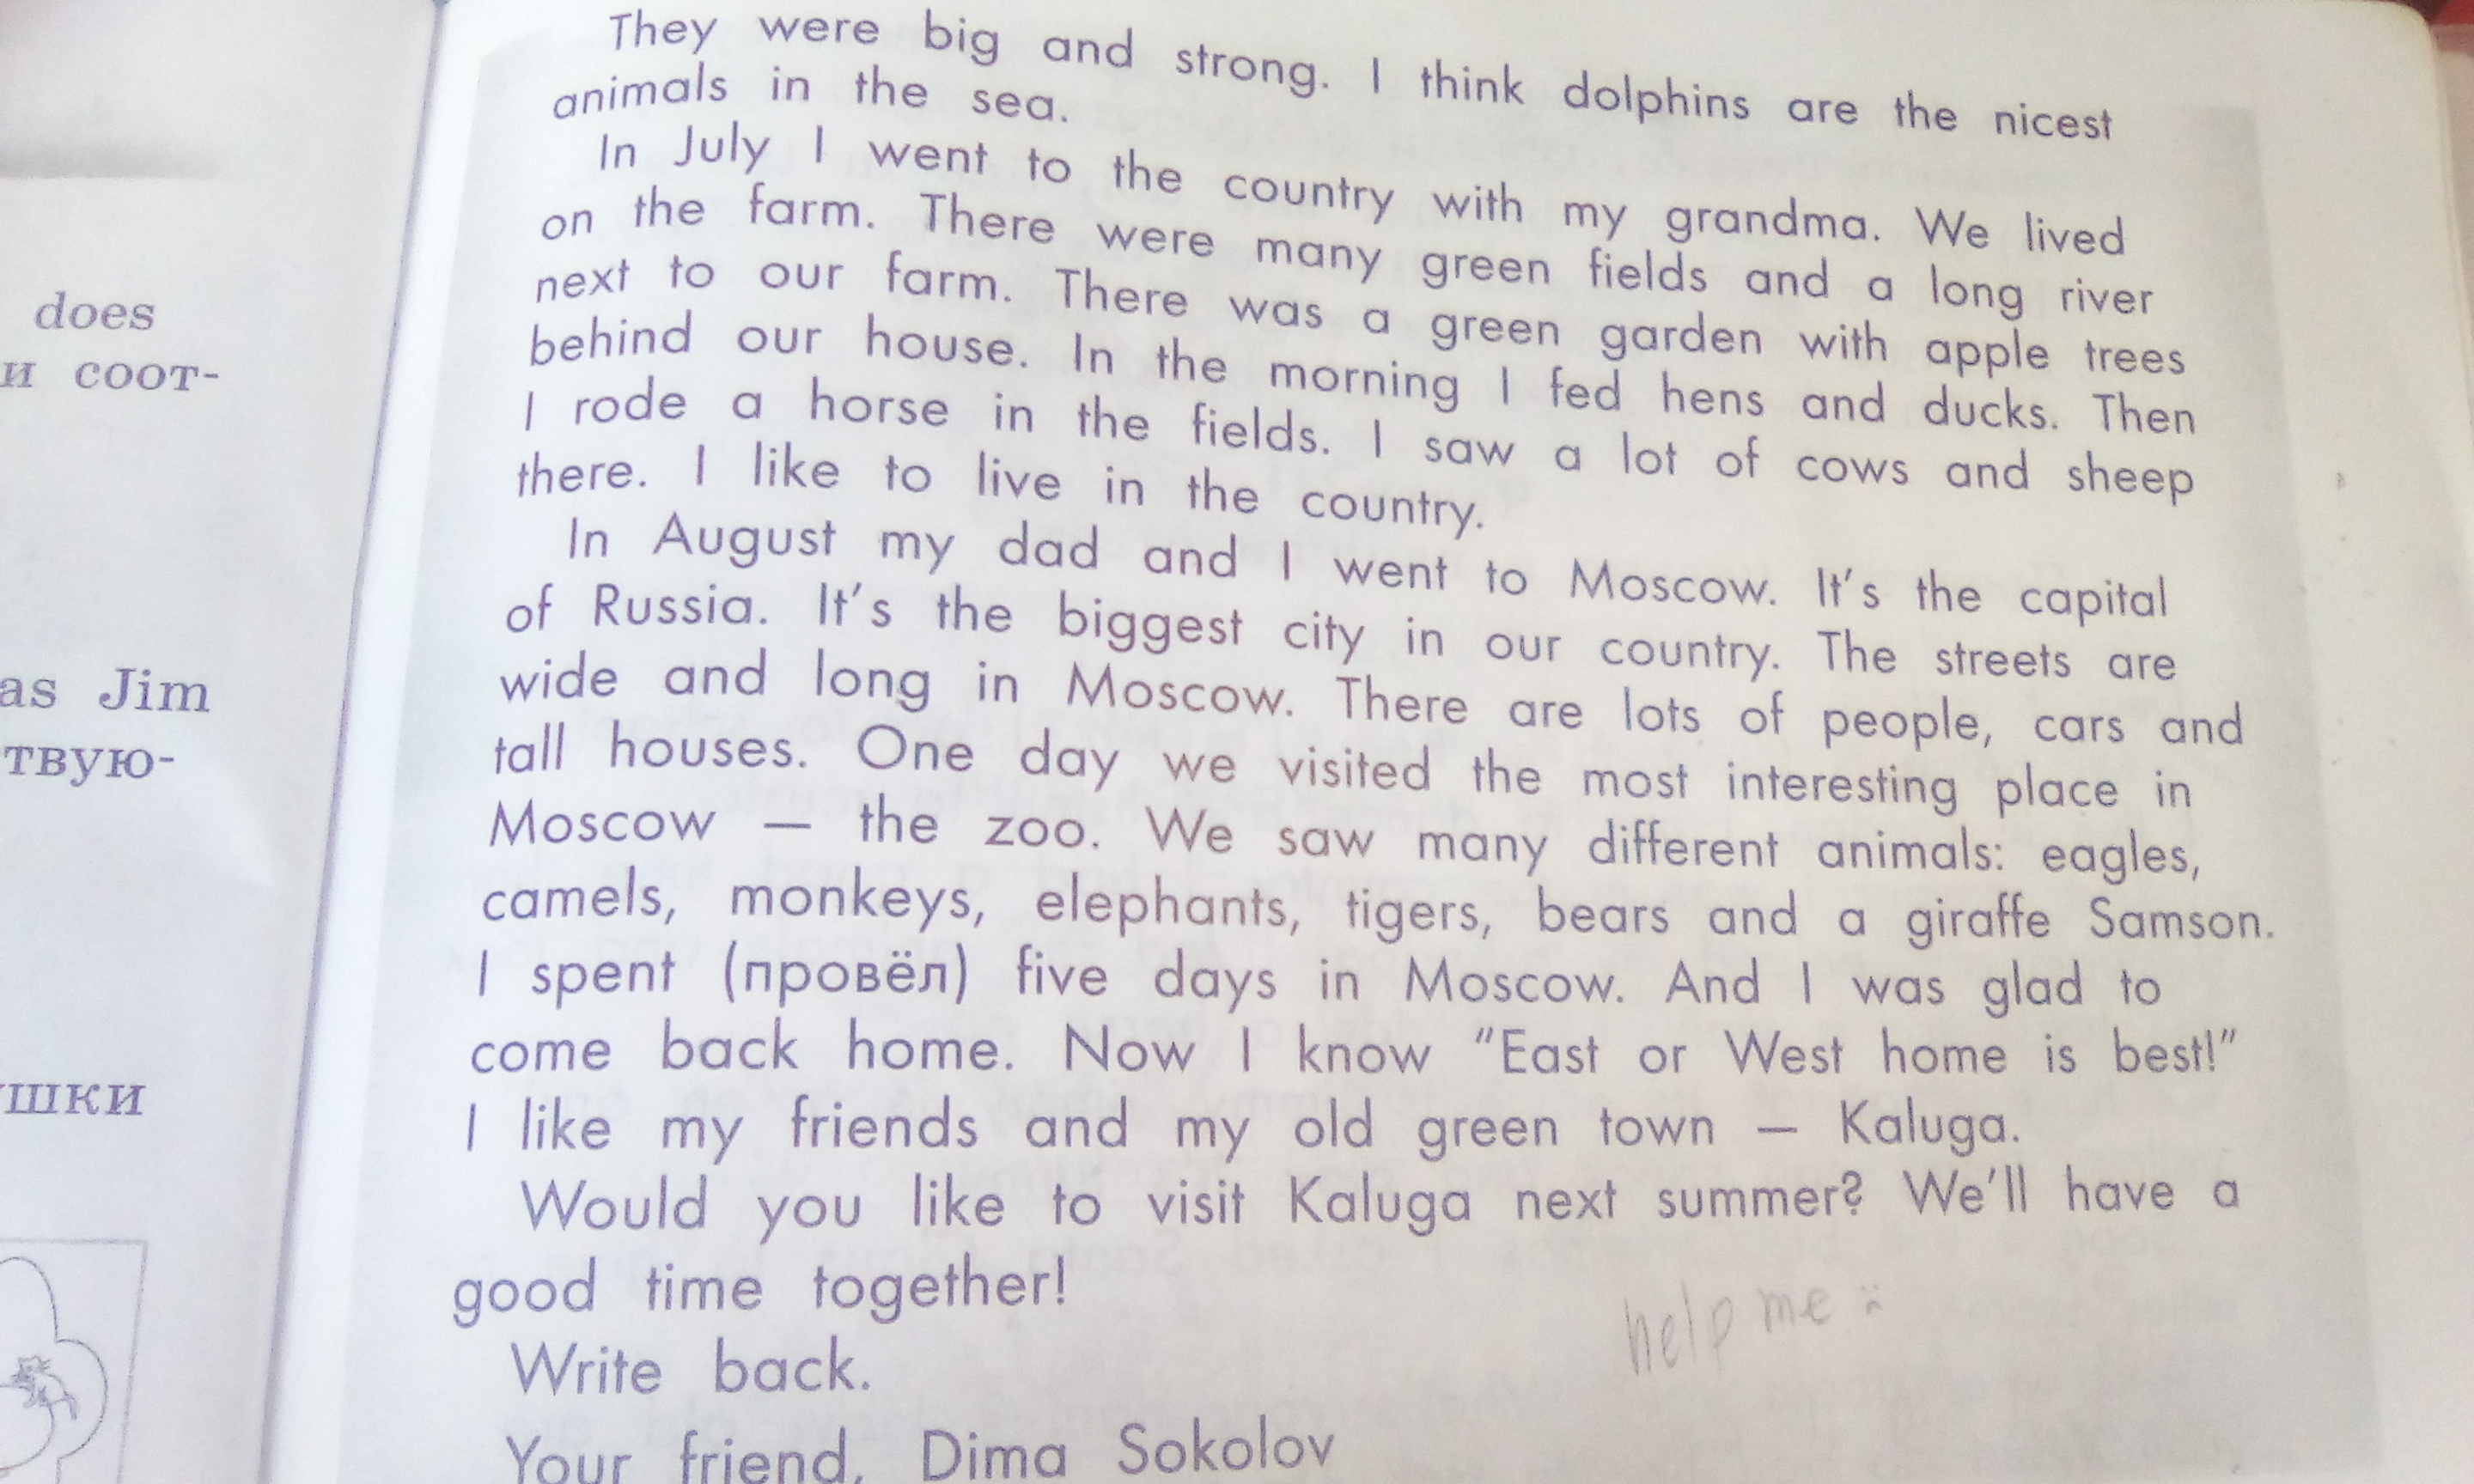 They were big and strong. I think dolphins are the nicest
animals in the sea.
In July I went to the country with my grandma. We lived
on the farm. There were many green fields and a long river
next to our farm. There was a green garden with apple trees
behind our house. In the morning I fed hens and ducks. Then
I rode a horse in the fields. I saw a lot of cows and sheep
there. I like to live in the country.
In August my dad and I went to Moscow. It's the capital
of Russia. It's the biggest city in our country. The streets are
wide and long in Moscow. There are lots of people, cars and
tall houses. One day we visited the most interesting place in
Moscow — the zoo. We saw many different animals: eagles,
camels, monkeys, elephants, tigers, bears and a giraffe Samson.
I spent (провёл) five days in Moscow. And I was glad to
come back home. Now I know "East or West home is best!"
I like my friends and my old green town — Kaluga.
Would you like to visit Kaluga next summer? We'll have a
good time together!
help me :(
Write back.
Your friend, Dima Sokolov
does
и соот-
as Jim
твую-
ушки